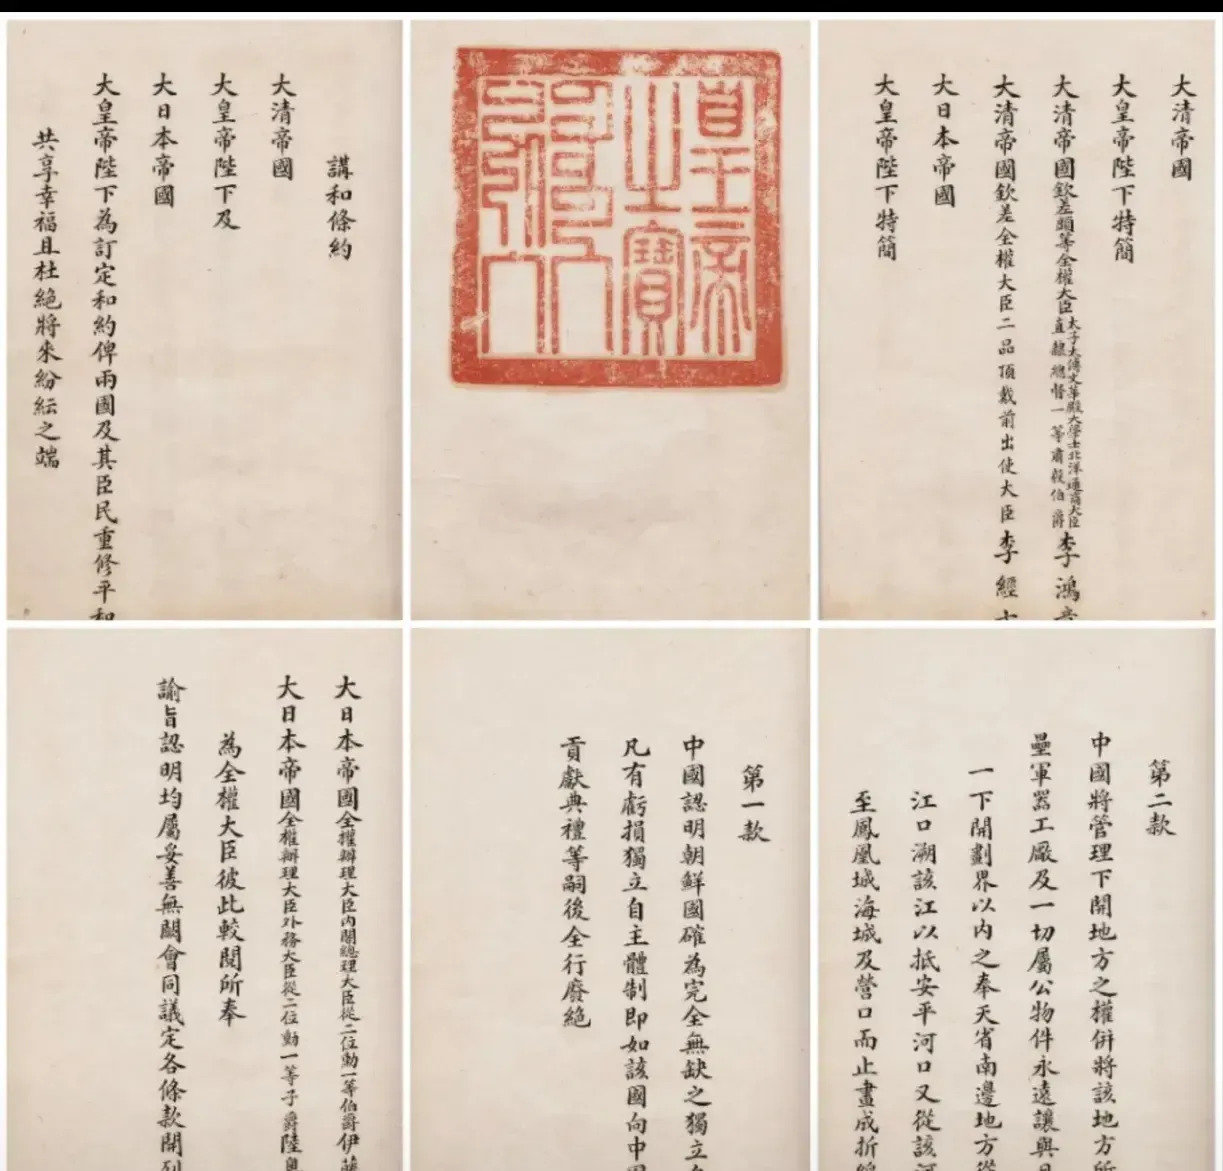 講和條約
大清帝國
大皇帝陛下及
大日本帝國
大皇帝陛下為訂定和約俾兩國及其臣民重修平和
共享幸福且杜絕將來紛紜之端
皇帝
之寶
大清帝國
大皇帝陛下特簡
大清帝國欽差頭等全權大臣太子太傅文華殿大學士北洋通商大臣直隸總督一等肅毅伯爵李鴻
大清帝國欽差全權大臣二品頂戴前出使大臣李經
大日本帝國
大皇帝陛下特簡
大日本帝國全權辦理大臣內閣總理大臣從二位勳一等伯爵伊藤
大日本帝國全權辦理大臣外務大臣從二位勳一等子爵陸奧
為全權大臣彼此較閱所奉
諭旨認明均屬妥善無闕會同議定各條款開列
第一款
中國認明朝鮮國確為完全無缺之獨立自
凡有虧損獨立自主體制即如該國向中國
貢獻典禮等嗣後全行廢絕
第二款
中國將管理下開地方之權併將該地方所
壘軍器工廠及一切屬公物件永遠讓與
一下開劃界以內之奉天省南邊地方從
江口溯該江以抵安平河口又從該河
至鳳凰城海城及營口而止畫成折線